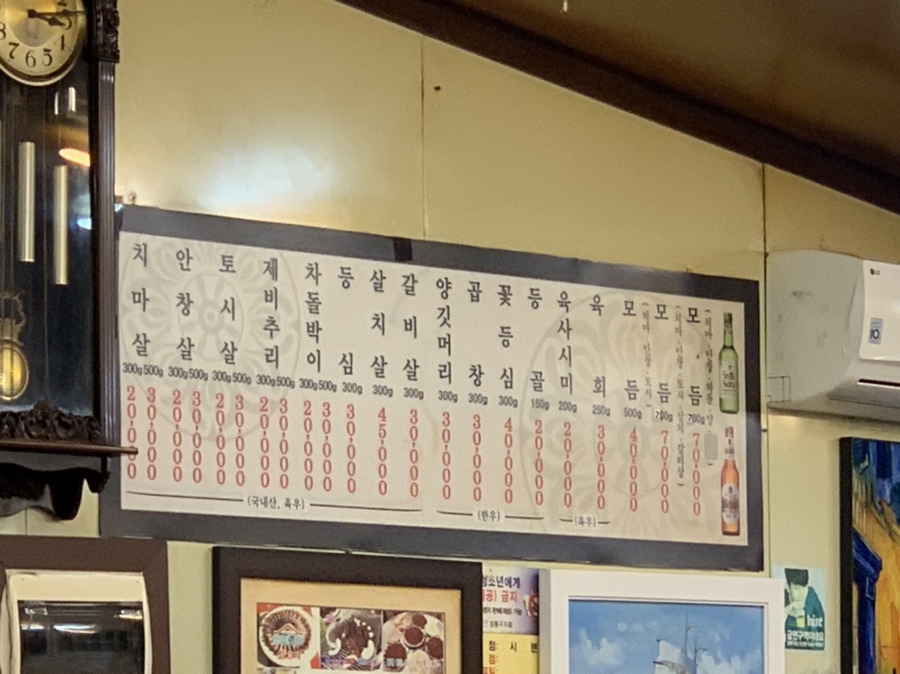 치마살 300g 500g 20,000 30,000
안창살 300g 500g 20,000 30,000
토시살 300g 500g 20,000 30,000
제비추리 300g 500g 20,000 30,000
차돌박이 300g 500g 20,000 30,000
등심 300g 30,000
살치살 300g 45,000
갈비살 300g 30,000
양깃머리 300g 30,000
곱창 300g 30,000
꽃등심 300g 40,000
등골 150g 20,000
육사시미 200g 20,000
육회 250g 30,000
모듬 500g 40,000 (치마·안창·토시)
모듬 700g 70,000
모듬 700g 70,000
(국내산, 육우)
(한우)
(육우)
청소년에게
금지
LG
7 6 5 4